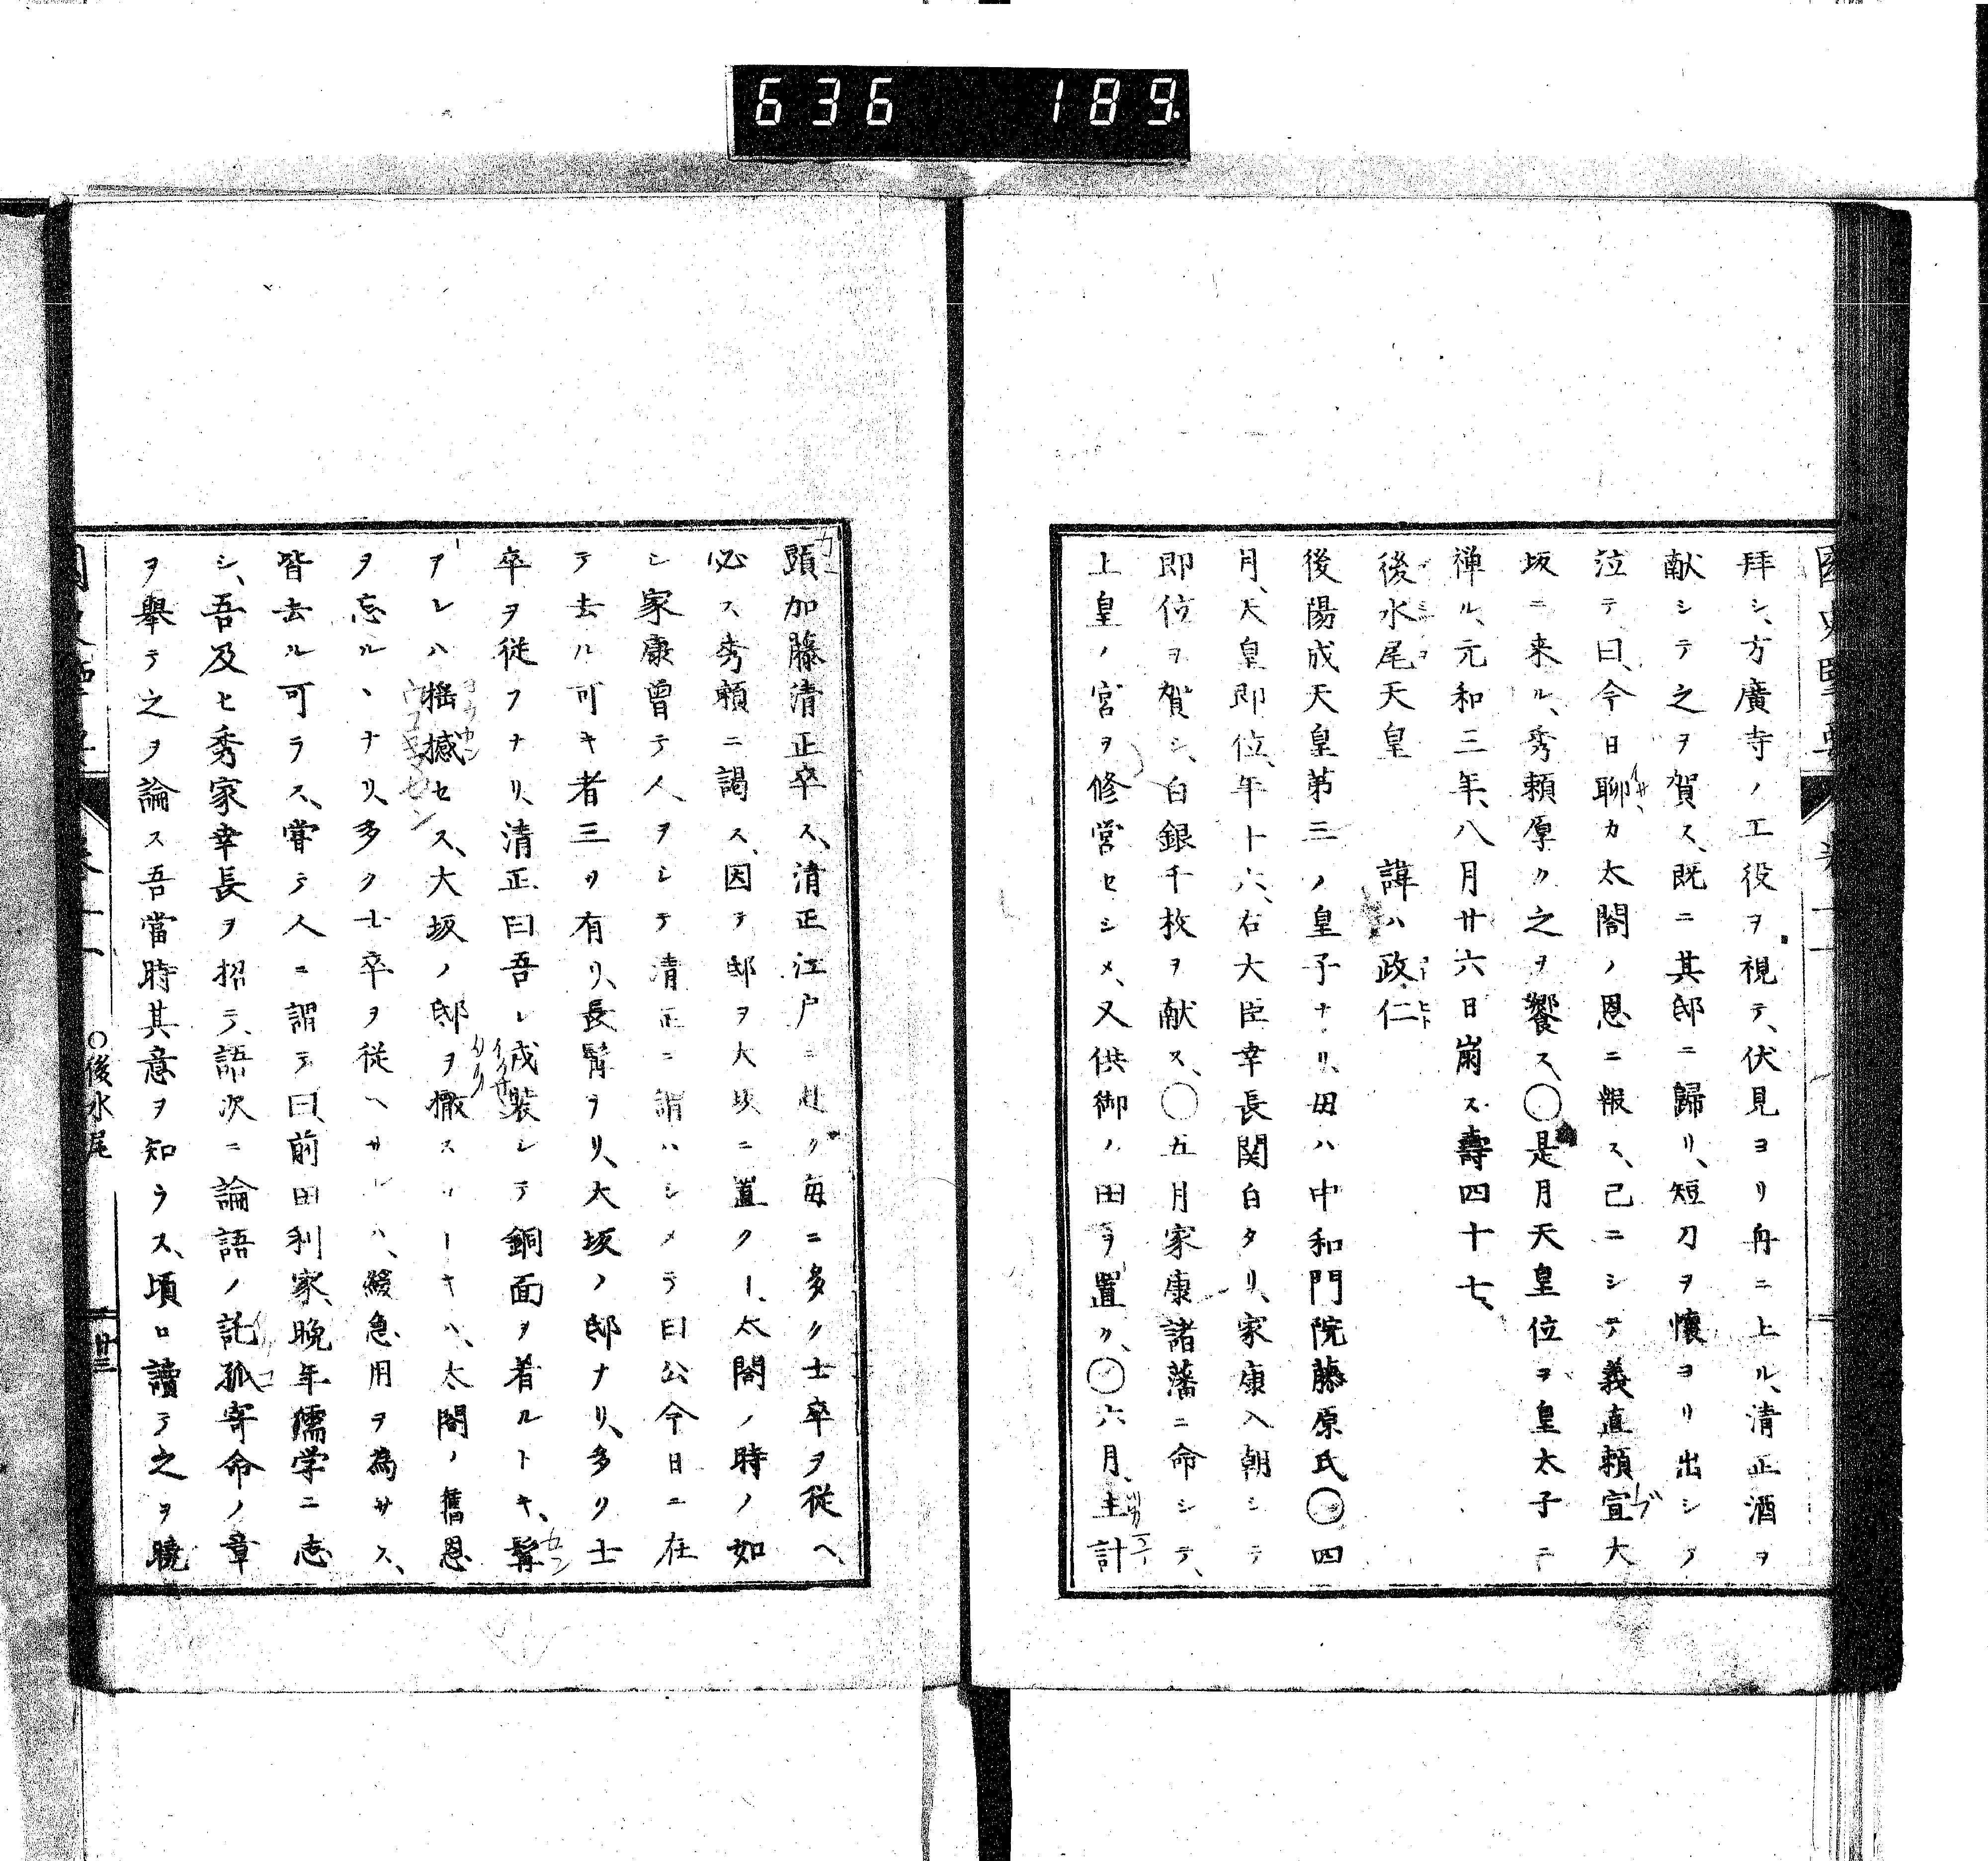 636 189
拜シ、方廣寺ノ工役ヲ視テ、伏見ヨリ舟ニ上ル、清正酒ヲ
献シテ之ヲ賀ス、既ニ其邸ニ歸リ、短刀ヲ懐ヨリ出シテ
泣テ曰、今日聊カ太閤ノ恩ニ報ス、已ニシテ義直頼宣大
坂ニ来ル、秀頼厚ク之ヲ饗ス、〇是月天皇位ヲ皇太子ニ
禅ル、元和三年、八月廿六日崩ス壽四十七、
後水尾天皇 諱ハ政仁
後陽成天皇第三ノ皇子ナリ、母ハ中和門院藤原氏〇四
月、天皇即位、年十六、右大臣幸長関白タリ、家康入朝シテ
即位ヲ賀シ、白銀千枚ヲ献ス、〇五月家康諸藩ニ命シテ、
上皇ノ宮ヲ修営セシメ、又供御ノ田ヲ置ク、〇六月、主計
頭加藤清正卒ス、清正江戸ニ赴ク毎ニ多ク士卒ヲ従ヘ、
必ス秀頼ニ謁ス、因テ邸ヲ大坂ニ置クヿ、太閤ノ時ノ如
シ家康曾テ人ヲシテ清正ニ謂ハシメテ曰公今日ニ在
テ去ル可キ者三ツ有リ、長髯ヲリ、大坂ノ邸ナリ、多ク士
卒ヲ従フナリ、清正曰吾レ戎装シテ銅面ヲ着ルトキ、髯
アレハ揺撼セス、大坂ノ邸ヲ撤スルヿキハ、太閤ノ舊恩
ヲ忘ルヽナリ、多ク士卒ヲ従ヘサレハ、緩急用ヲ為サス、
皆去ル可ラス、嘗テ人ニ謂テ曰、前田利家、晩年儒学ニ志
シ、吾及ヒ秀家幸長ヲ招テ、語次ニ論語ノ託孤寄命ノ章
ヲ舉テ之ヲ論ス吾當時其意ヲ知ラス、頃ロ讀テ之ヲ曉
〇後水尾
廿三